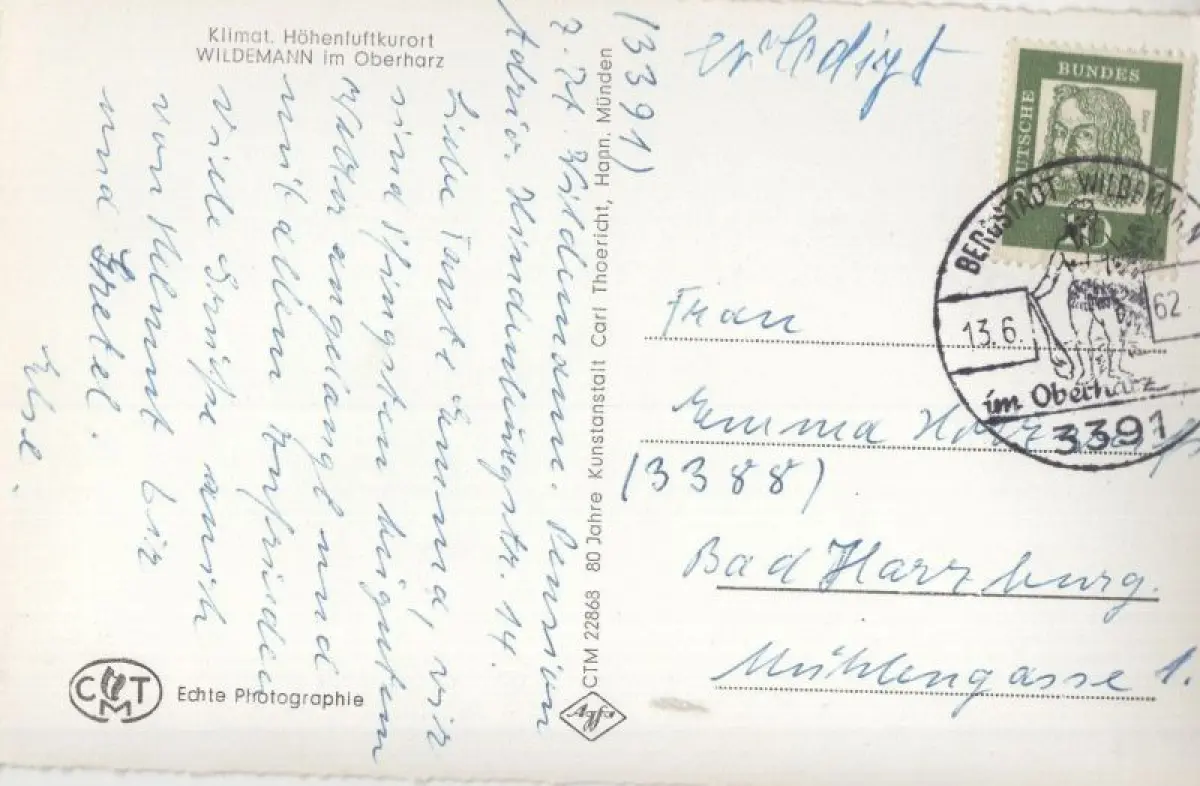 Klimat. Höhenluftkurort
WILDEMANN im Oberharz
(3391)
z. Zt. Wildemann. Pension
Adrio. Hindenburgstr. 14.
Liebe Tante Emma, wir
sind Pfingsten bei gutem
Wetter angelangt und
mit allem zufrieden
Viele Grüße auch
von Helmut
und Gretel.
Else.
CMT
Echte Photographie
CTM 22868 80 Jahre Kunstanstalt Carl Thoericht, Hann. Münden
Agfa
erledigt
DEUTSCHE BUNDES
BERGSTADT WILDEMANN
13.6. 62
im Oberharz
3391
Frau
Emma
(3388)
Bad Harzburg.
Mühlengasse 1.